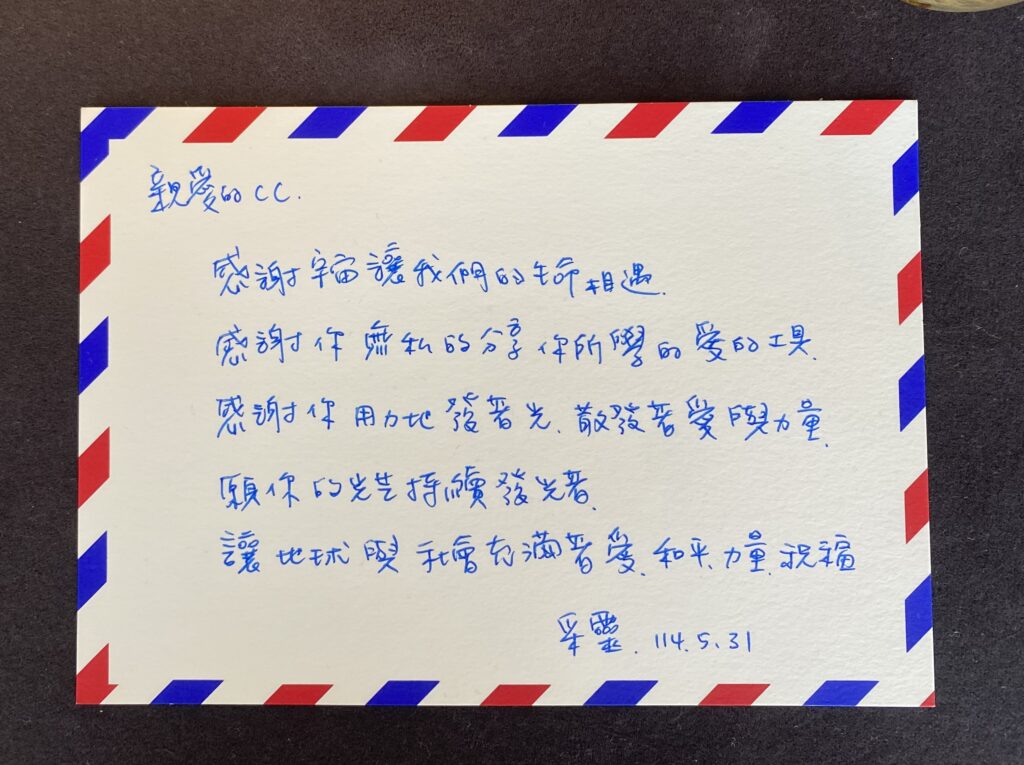 親愛的CC.
感謝宇宙讓我們的生命相遇.
感謝你無私的分享你所學的愛的工具.
感謝你用力地發著光、散發著愛與力量.
願你的光芒持續發光著.
讓地球與社會充滿著愛、和平、力量、祝福
采靈. 114.5.31